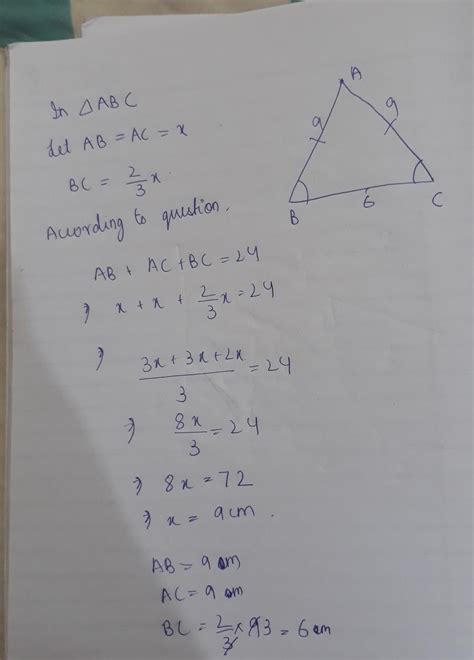 In △ABC
Let AB = AC = x
BC = 2/3 x.
According to question.
AB + AC + BC = 24
⇒ x + x + 2/3 x = 24
⇒ (3x + 3x + 2x)/3 = 24
⇒ 8x/3 = 24
⇒ 8x = 72
⇒ x = 9cm.
AB = 9 cm
AC = 9 cm
BC = 2/3 × 9 3 = 6 cm
A
9
9
B
6
C